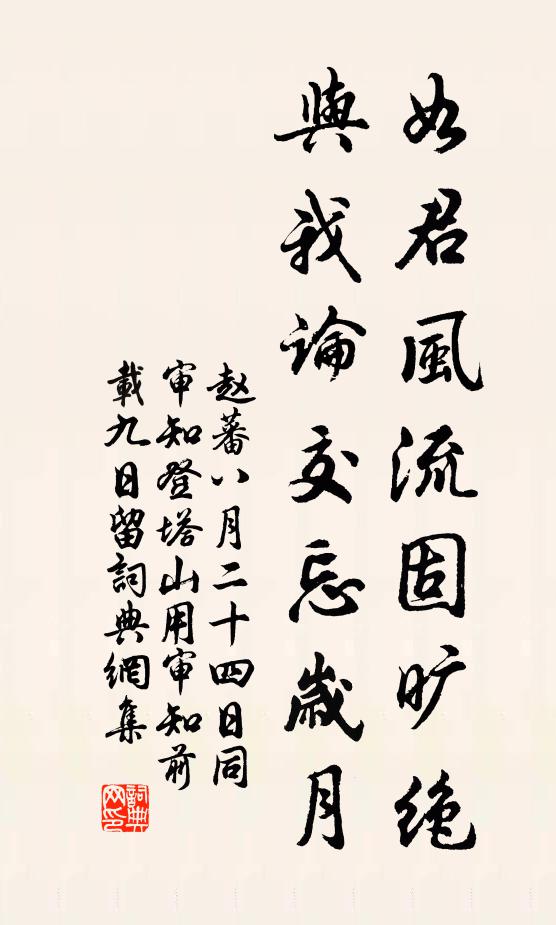 如君風流固旷绝
與我論交忘歲月
赵蕃八月二十四日同
审知登塔山用审知前
載九日留詞典網集
詞典网印